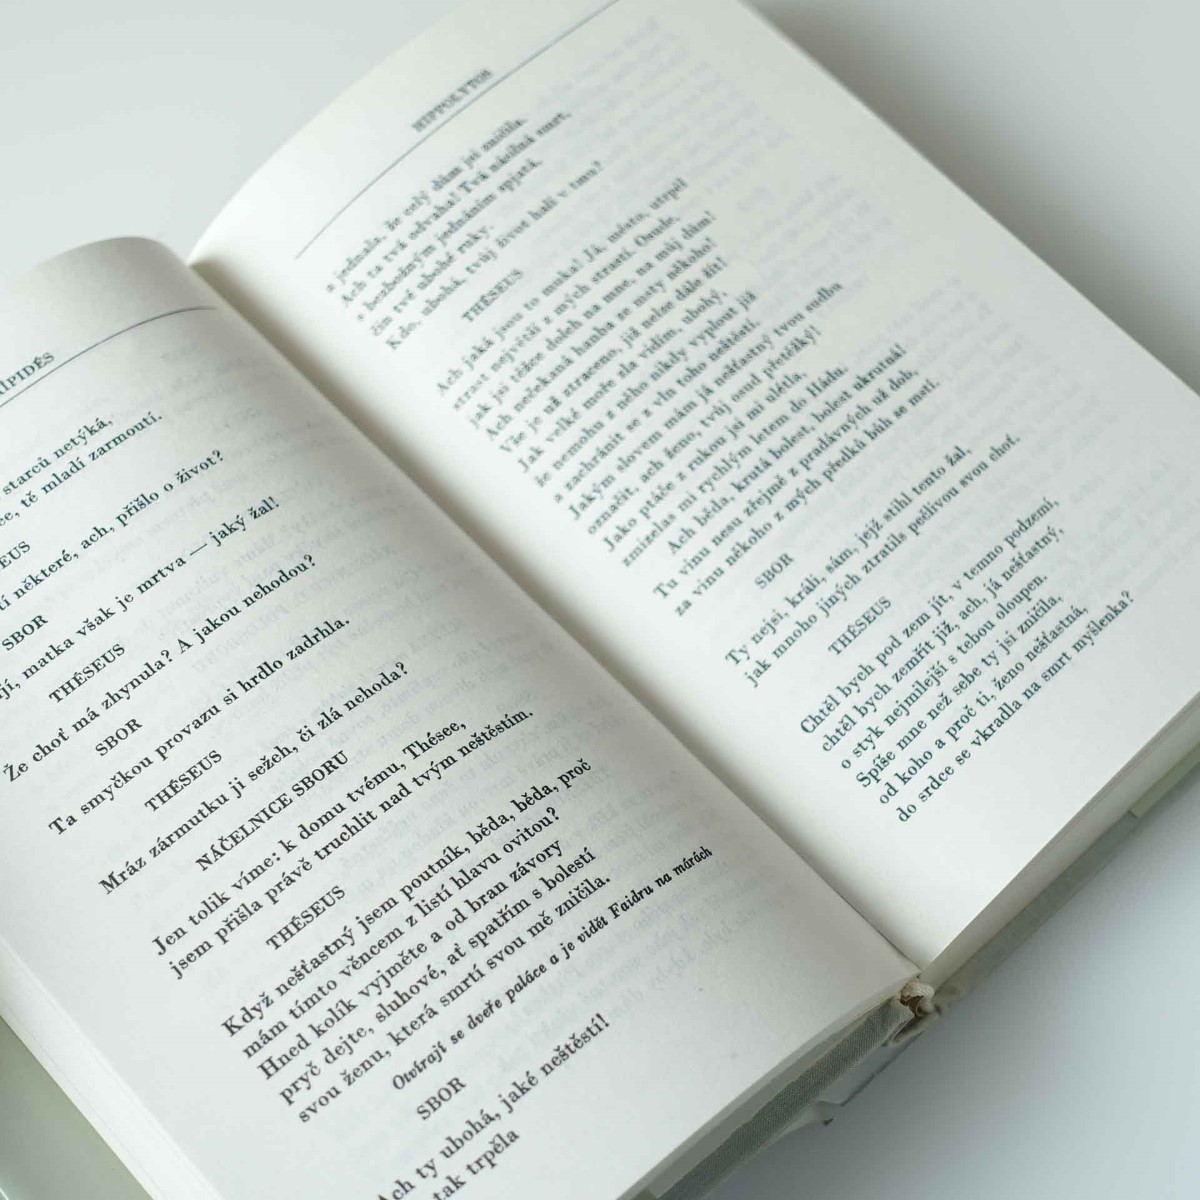 ÍPIDÉS
starců netýká,
ce, tě mladí zarmoutí.
EUS
tí některé, ach, přišlo o život?
SBOR
jí, matka však je mrtva — jaký žal!
THÉSEUS
Že choť má zhynula? A jakou nehodou?
SBOR
Ta smyčkou provazu si hrdlo zadrhla.
THÉSEUS
Mráz zármutku ji sežeh, či zlá nehoda?
NÁČELNICE SBORU
Jen tolik víme: k domu tvému, Thésee,
jsem přišla právě truchlit nad tvým neštěstím.
THÉSEUS
Když nešťastný jsem poutník, běda, běda, proč
mám tímto věncem z listí hlavu ovitou?
Hned kolík vyjměte a od bran závory
pryč dejte, sluhové, ať spatřím s bolestí
svou ženu, která smrtí svou mě zničila.
Otvírají se dveře paláce a je vidět Faidru na márách
SBOR
Ach ty ubohá, jaké neštěstí!
tak trpěla
HIPPOLYTOS
a jednala, že celý dům jsi zničila.
Ach ta tvá odvaha! Tvá násilná smrt,
s bezbožným jednáním spjatá,
čin tvé ubohé ruky.
Kdo, ubohá, tvůj život halí v tmu?
THÉSEUS
Ach jaká jsou to muka! Já, město, utrpěl
strast největší z mých strastí. Osude,
jak jsi těžce doleh na mne, na můj dům!
Ach nečekaná hanba ze msty někoho!
Vše je už ztraceno, již nelze dále žít!
Jak velké moře zla vidím, ubohý,
že nemohu z něho nikdy vyplout již
a zachránit se z vln toho neštěstí.
Jakým slovem mám já nešťastný tvou sudbu
označit, ach ženo, tvůj osud přetěžký!
Jako ptáče z rukou jsi mi ulétla,
zmizelas mi rychlým letem do Hádu.
Ach běda, krutá bolest, bolest ukrutná!
Tu vinu nesu zřejmě z pradávných už dob,
za vinu někoho z mých předků bůh se mstí.
SBOR
Ty nejsi, králi, sám, jejž stihl tento žal,
jak mnoho jiných ztratils pečlivou svou choť.
THÉSEUS
Chtěl bych pod zem jít, v temno podzemí,
chtěl bych zemřít již, ach, já nešťastný,
o styk nejmilejší s tebou oloupen.
Spíše mne než sebe ty jsi zničila,
od koho a proč ti, ženo nešťastná,
do srdce se vkradla na smrt myšlenka?